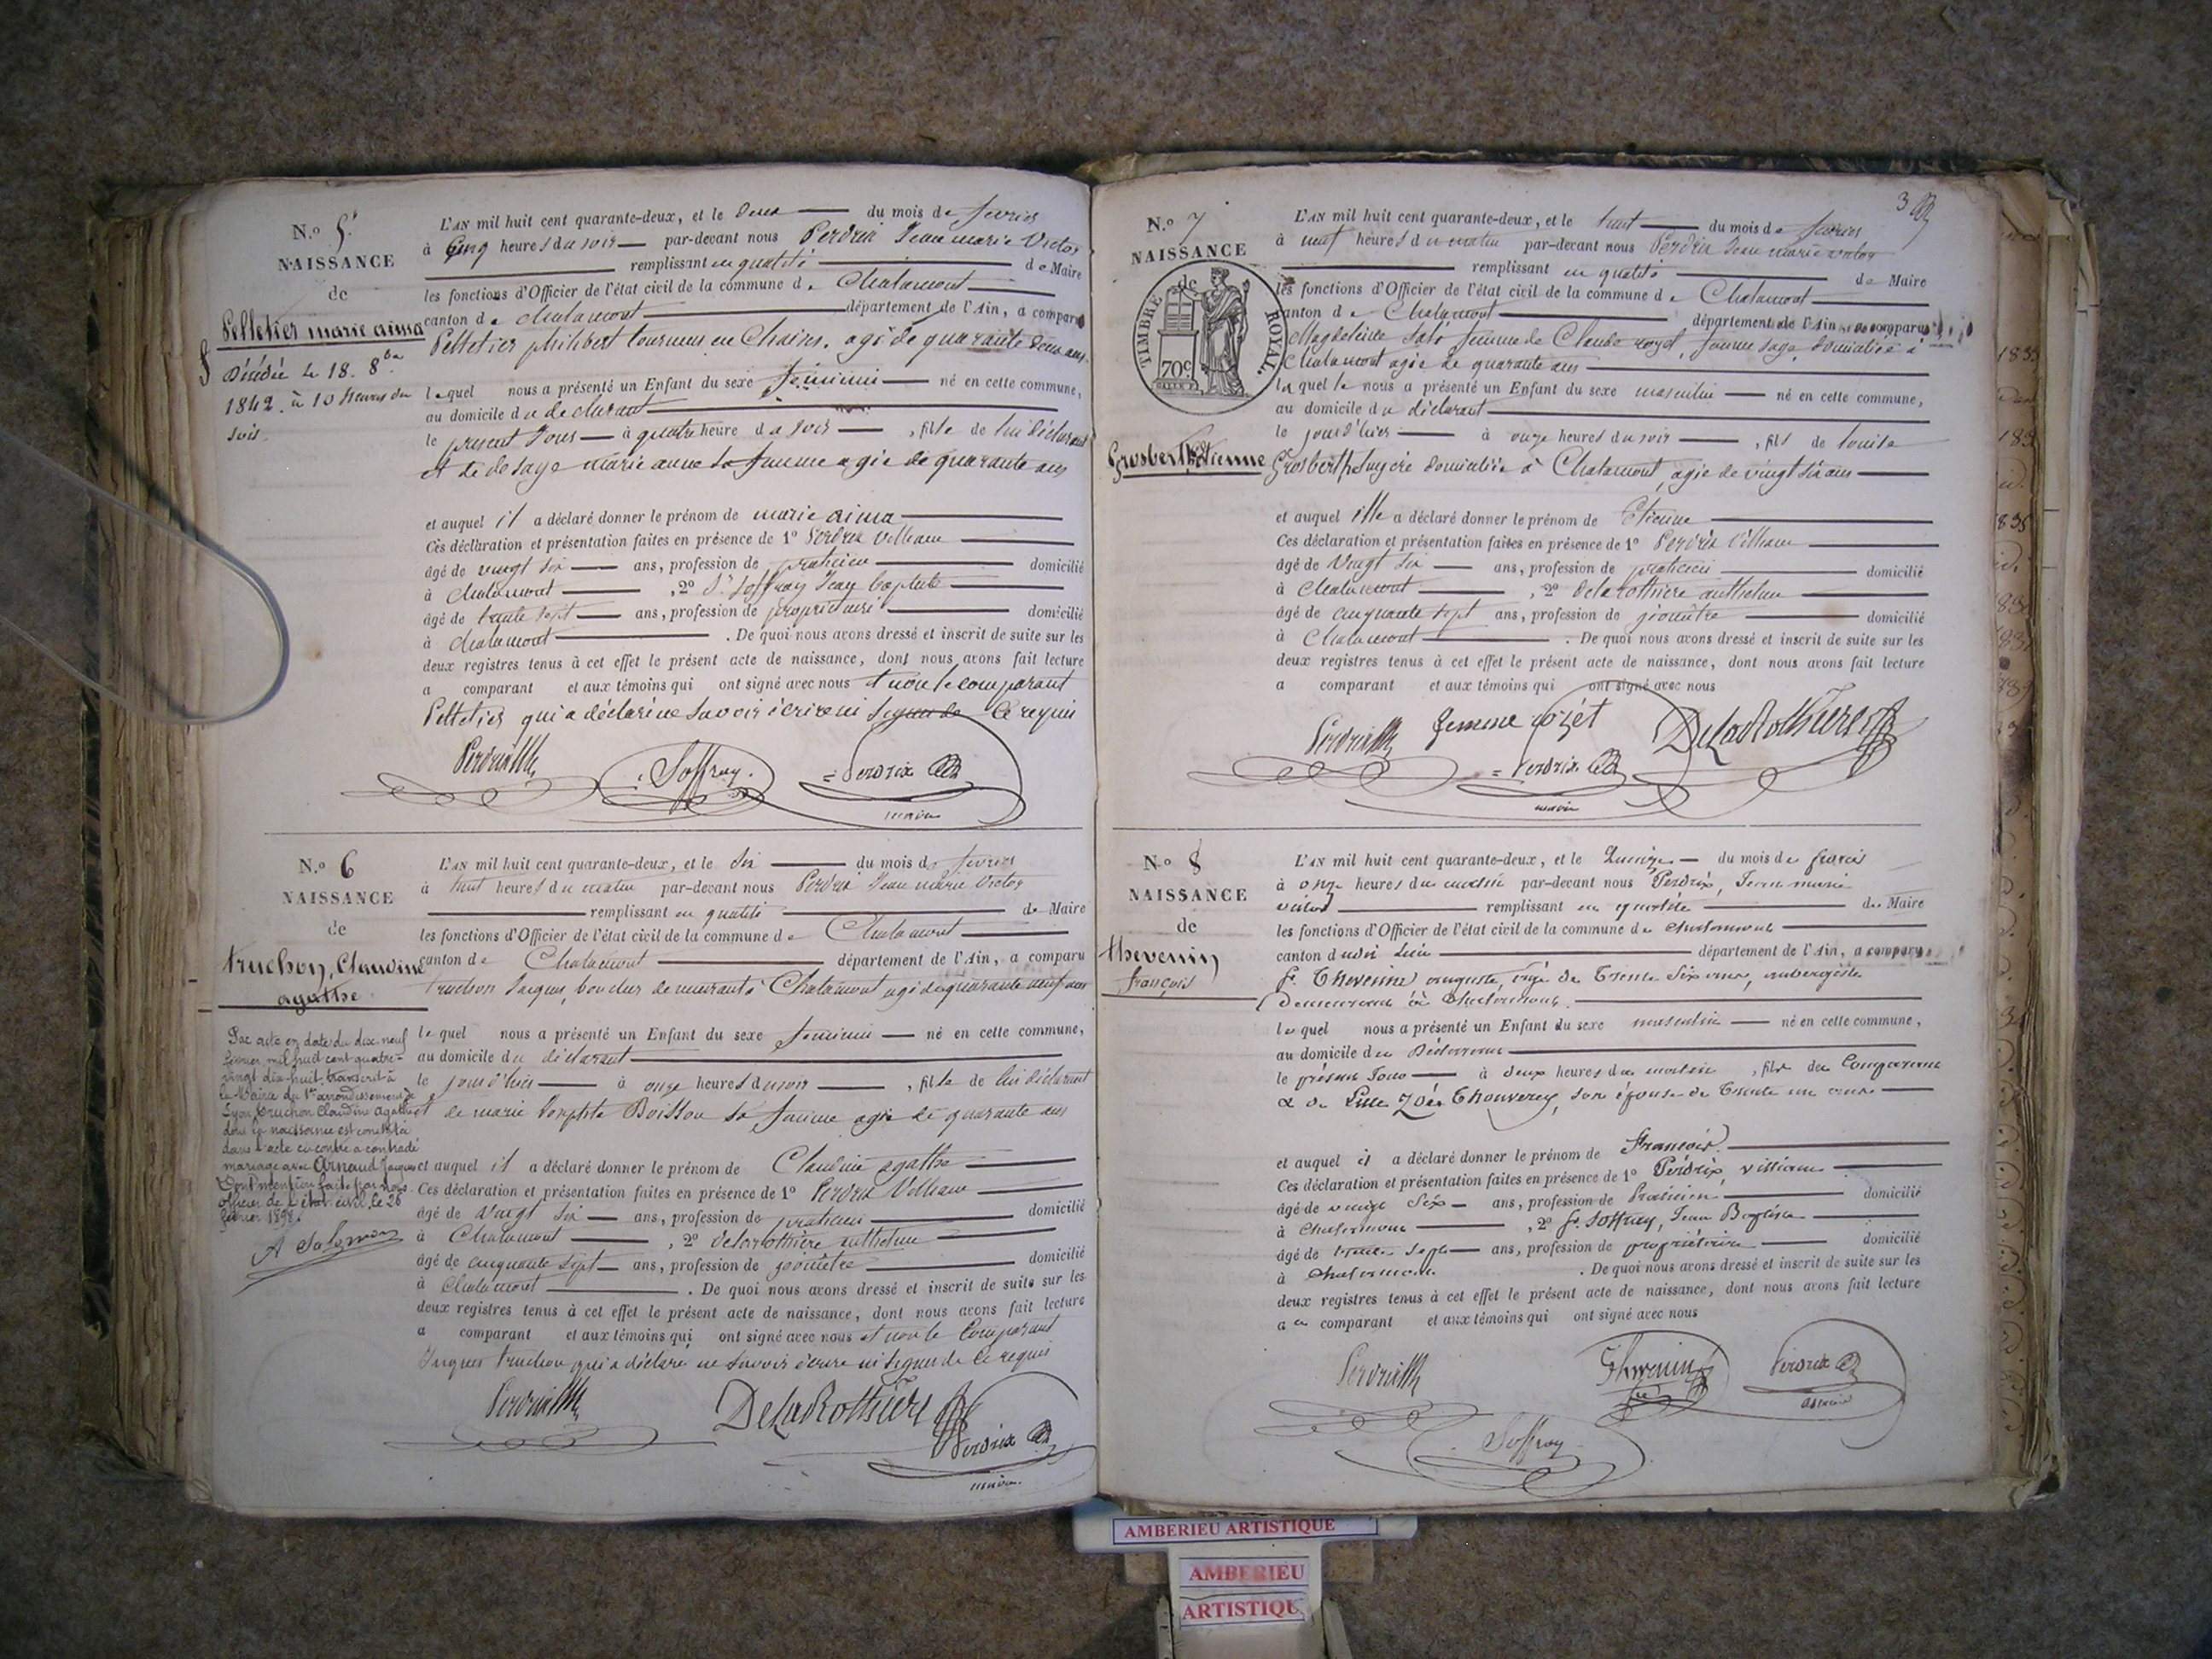 N.º 5.
NAISSANCE
de
Pelletier marie aima
Décédée le 18. 8bre
1842. à 10 heures du
soir.
L'AN mil huit cent quarante-deux, et le deux du mois de fevrier
à cinq heures du soir par-devant nous Perdrix Jean marie Victor
remplissant en qualité de Maire
les fonctions d'Officier de l'état civil de la commune de Chalamont
canton de chalamont département de l'Ain, a comparu
Pelletier philibert tourneur en Chaises, agé de quarante deux ans.
lequel nous a présenté un Enfant du sexe féminin né en cette commune,
au domicile du declarant
le present Jour à quatre heure du soir, fille de lui déclarant
et de marie anne sa femme agée de quarante ans
et auquel il a déclaré donner le prénom de marie aima
Ces déclaration et présentation faites en présence de 1º Perdrix Villiam
âgé de vingt six ans, profession de praticien domicilié
à chalamont, 2º Sr Soffray Jean baptiste
âgé de trente sept ans, profession de propriétaire domicilié
à chalamont. De quoi nous avons dressé et inscrit de suite sur les
deux registres tenus à cet effet le présent acte de naissance, dont nous avons fait lecture
a comparant et aux témoins qui ont signé avec nous et non le comparant
Pelletier qui a déclaré ne savoir écrire ni signer de ce requis
Perdrix Soffray Perdrix
maire
N.º 6
NAISSANCE
de
truchon, Claudine
agathe
Par acte en date du dix neuf
février mil huit cent quatre-
vingt dix-huit, transcrit à
la Mairie du 1er arrondissement de
Lyon, truchon Claudine agathe
dont la naissance est constatée
dans l'acte ci-contre a contracté
mariage avec Arnaud Jacques
Dont mention faite par nous
officier de l'état civil, le 26
février 1898.
A Salomon
L'AN mil huit cent quarante-deux, et le six du mois de fevrier
à huit heures du matin par-devant nous Perdrix Jean marie Victor
remplissant en qualité de Maire
les fonctions d'Officier de l'état civil de la commune de Chalamont
canton de Chalamont département de l'Ain, a comparu
truchon Jacques, boucher demeurant à Chalamont agé de quarante neuf ans
lequel nous a présenté un Enfant du sexe féminin né en cette commune,
au domicile du déclarant
le jour d'hier à onze heures du soir, fille de lui déclarant
et de marie Josephte Boisson sa femme agée de quarante ans
et auquel il a déclaré donner le prénom de Claudine agathe
Ces déclaration et présentation faites en présence de 1º Perdrix Villiam
âgé de vingt six ans, profession de praticien domicilié
à Chalamont, 2º Delarothiere anthelme
âgé de cinquante sept ans, profession de géomètre domicilié
à Chalamont. De quoi nous avons dressé et inscrit de suite sur les
deux registres tenus à cet effet le présent acte de naissance, dont nous avons fait lecture
a comparant et aux témoins qui ont signé avec nous et non le Comparant
Jacques truchon qui a déclaré ne savoir écrire ni signer de ce requis
Perdrix DeLaRothiere
Perdrix
maire
3
N.º 7
NAISSANCE
de
TIMBRE ROYAL.
70c
Grosberth Etienne
L'AN mil huit cent quarante-deux, et le huit du mois de fevrier
à neuf heures du matin par-devant nous Perdrix Jean marie victor
remplissant en qualité de Maire
les fonctions d'Officier de l'état civil de la commune de Chalamont
canton de Chalamont département de l'Ain, a comparu
Magdeleine femme de Claude royet, femme sage, domiciliée à
Chalamont agée de quarante ans
laquelle nous a présenté un Enfant du sexe masculin né en cette commune,
au domicile du déclarant
le jour d'hier à onze heures du soir, fils de louise
Grosberth lingère domiciliée à Chalamont, agée de vingt six ans
et auquel elle a déclaré donner le prénom de Etienne
Ces déclaration et présentation faites en présence de 1º Perdrix Villiam
âgé de vingt six ans, profession de praticien domicilié
à chalamont, 2º Delarothiere anthelme
âgé de cinquante sept ans, profession de géomètre domicilié
à Chalamont. De quoi nous avons dressé et inscrit de suite sur les
deux registres tenus à cet effet le présent acte de naissance, dont nous avons fait lecture
a comparant et aux témoins qui ont signé avec nous
Perdrix femme royét DeLaRothiere
Perdrix
maire
N.º 8
NAISSANCE
de
thevenin
françois
L'AN mil huit cent quarante-deux, et le Quinze du mois de fevrier
à onze heures du matin par-devant nous Perdrix, Jean marie
victor remplissant en qualité de Maire
les fonctions d'Officier de l'état civil de la commune de chalamont
canton dudit lieu département de l'Ain, a comparu
Sr Thevenin auguste, âgé de Trente Six ans, aubergiste
Demeurant à Chalamont.
lequel nous a présenté un Enfant du sexe masculin né en cette commune,
au domicile du Déclarant
le présent Jour à deux heures du matin, fils du Comparant
& de Zoé Thouverey, son épouse de Trente un ans
et auquel il a déclaré donner le prénom de François.
Ces déclaration et présentation faites en présence de 1º Perdrix, villiam
âgé de vingt Six ans, profession de Praticien domicilié
à Chalamont, 2º Sr Soffray, Jean Baptiste
âgé de trente Sept ans, profession de propriétaire domicilié
à chalamont. De quoi nous avons dressé et inscrit de suite sur les
deux registres tenus à cet effet le présent acte de naissance, dont nous avons fait lecture
au comparant et aux témoins qui ont signé avec nous
Perdrix Thevenin Perdrix
maire
Soffray
AMBERIEU ARTISTIQUE
AMBERIEU
ARTISTIQUE